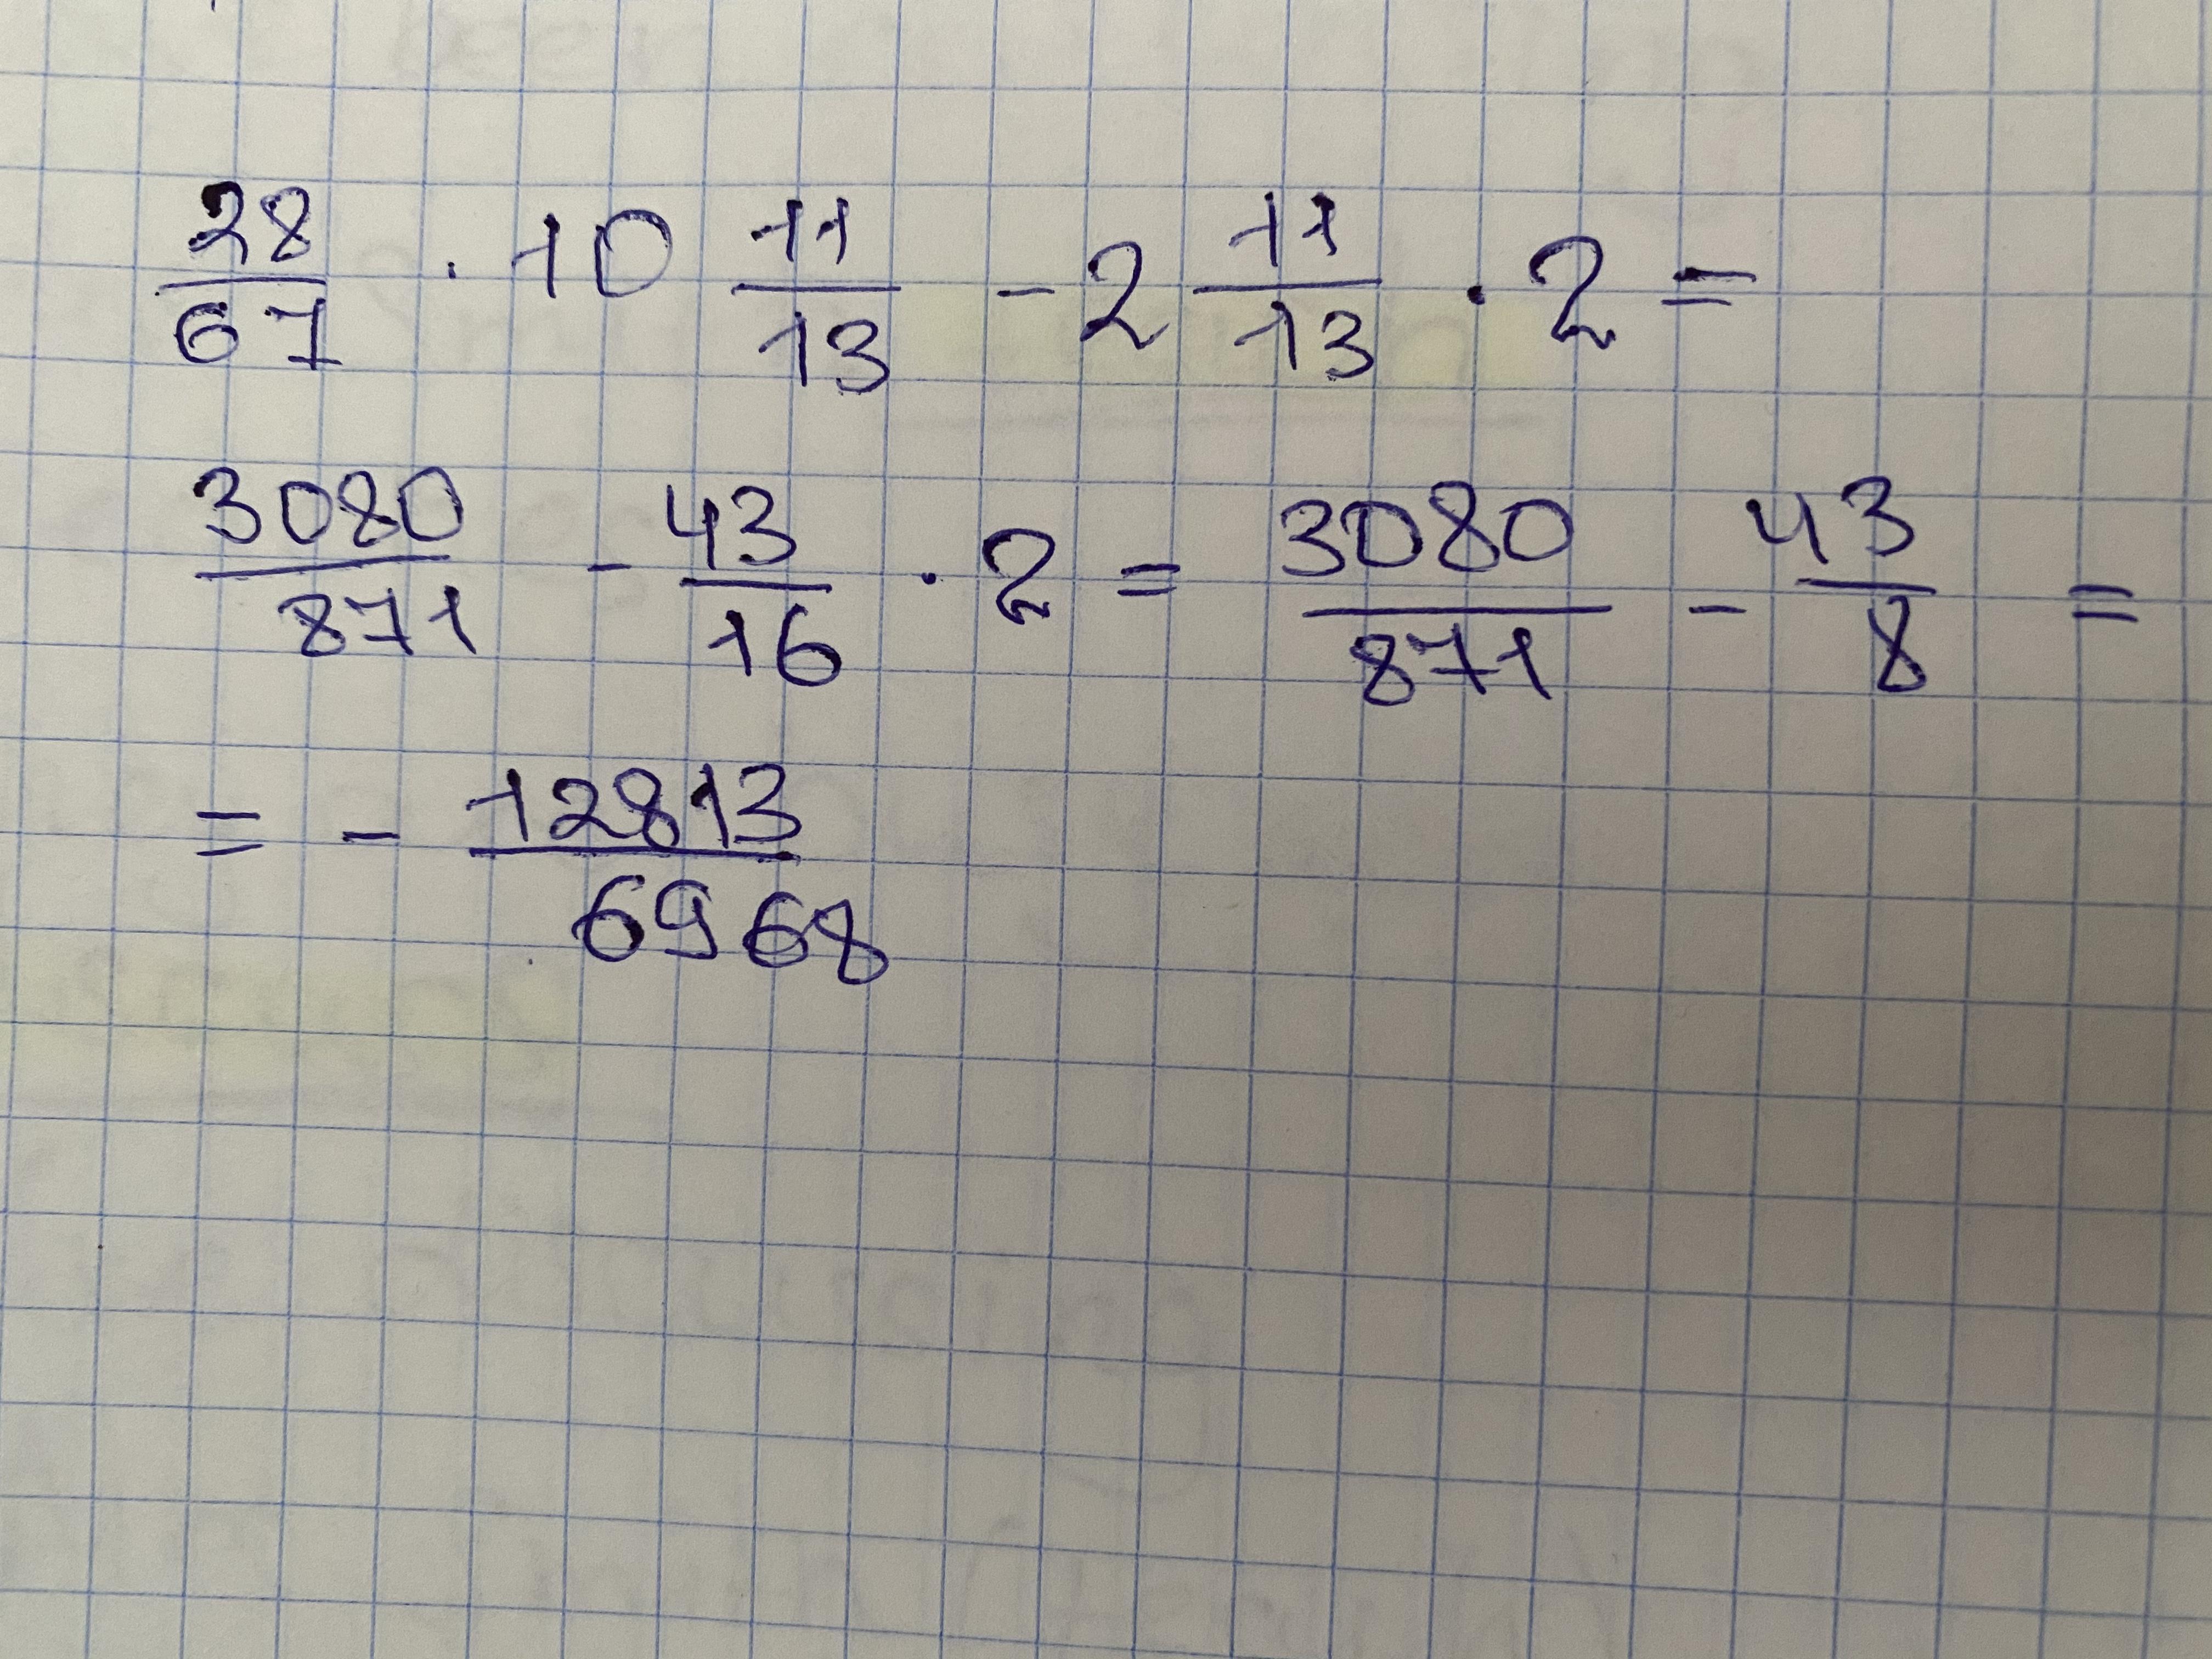 28/67 · 10 11/13 - 2 11/13 · 2 =
3080/871 - 43/16 · 2 = 3080/871 - 43/8 =
= - 12813/6968